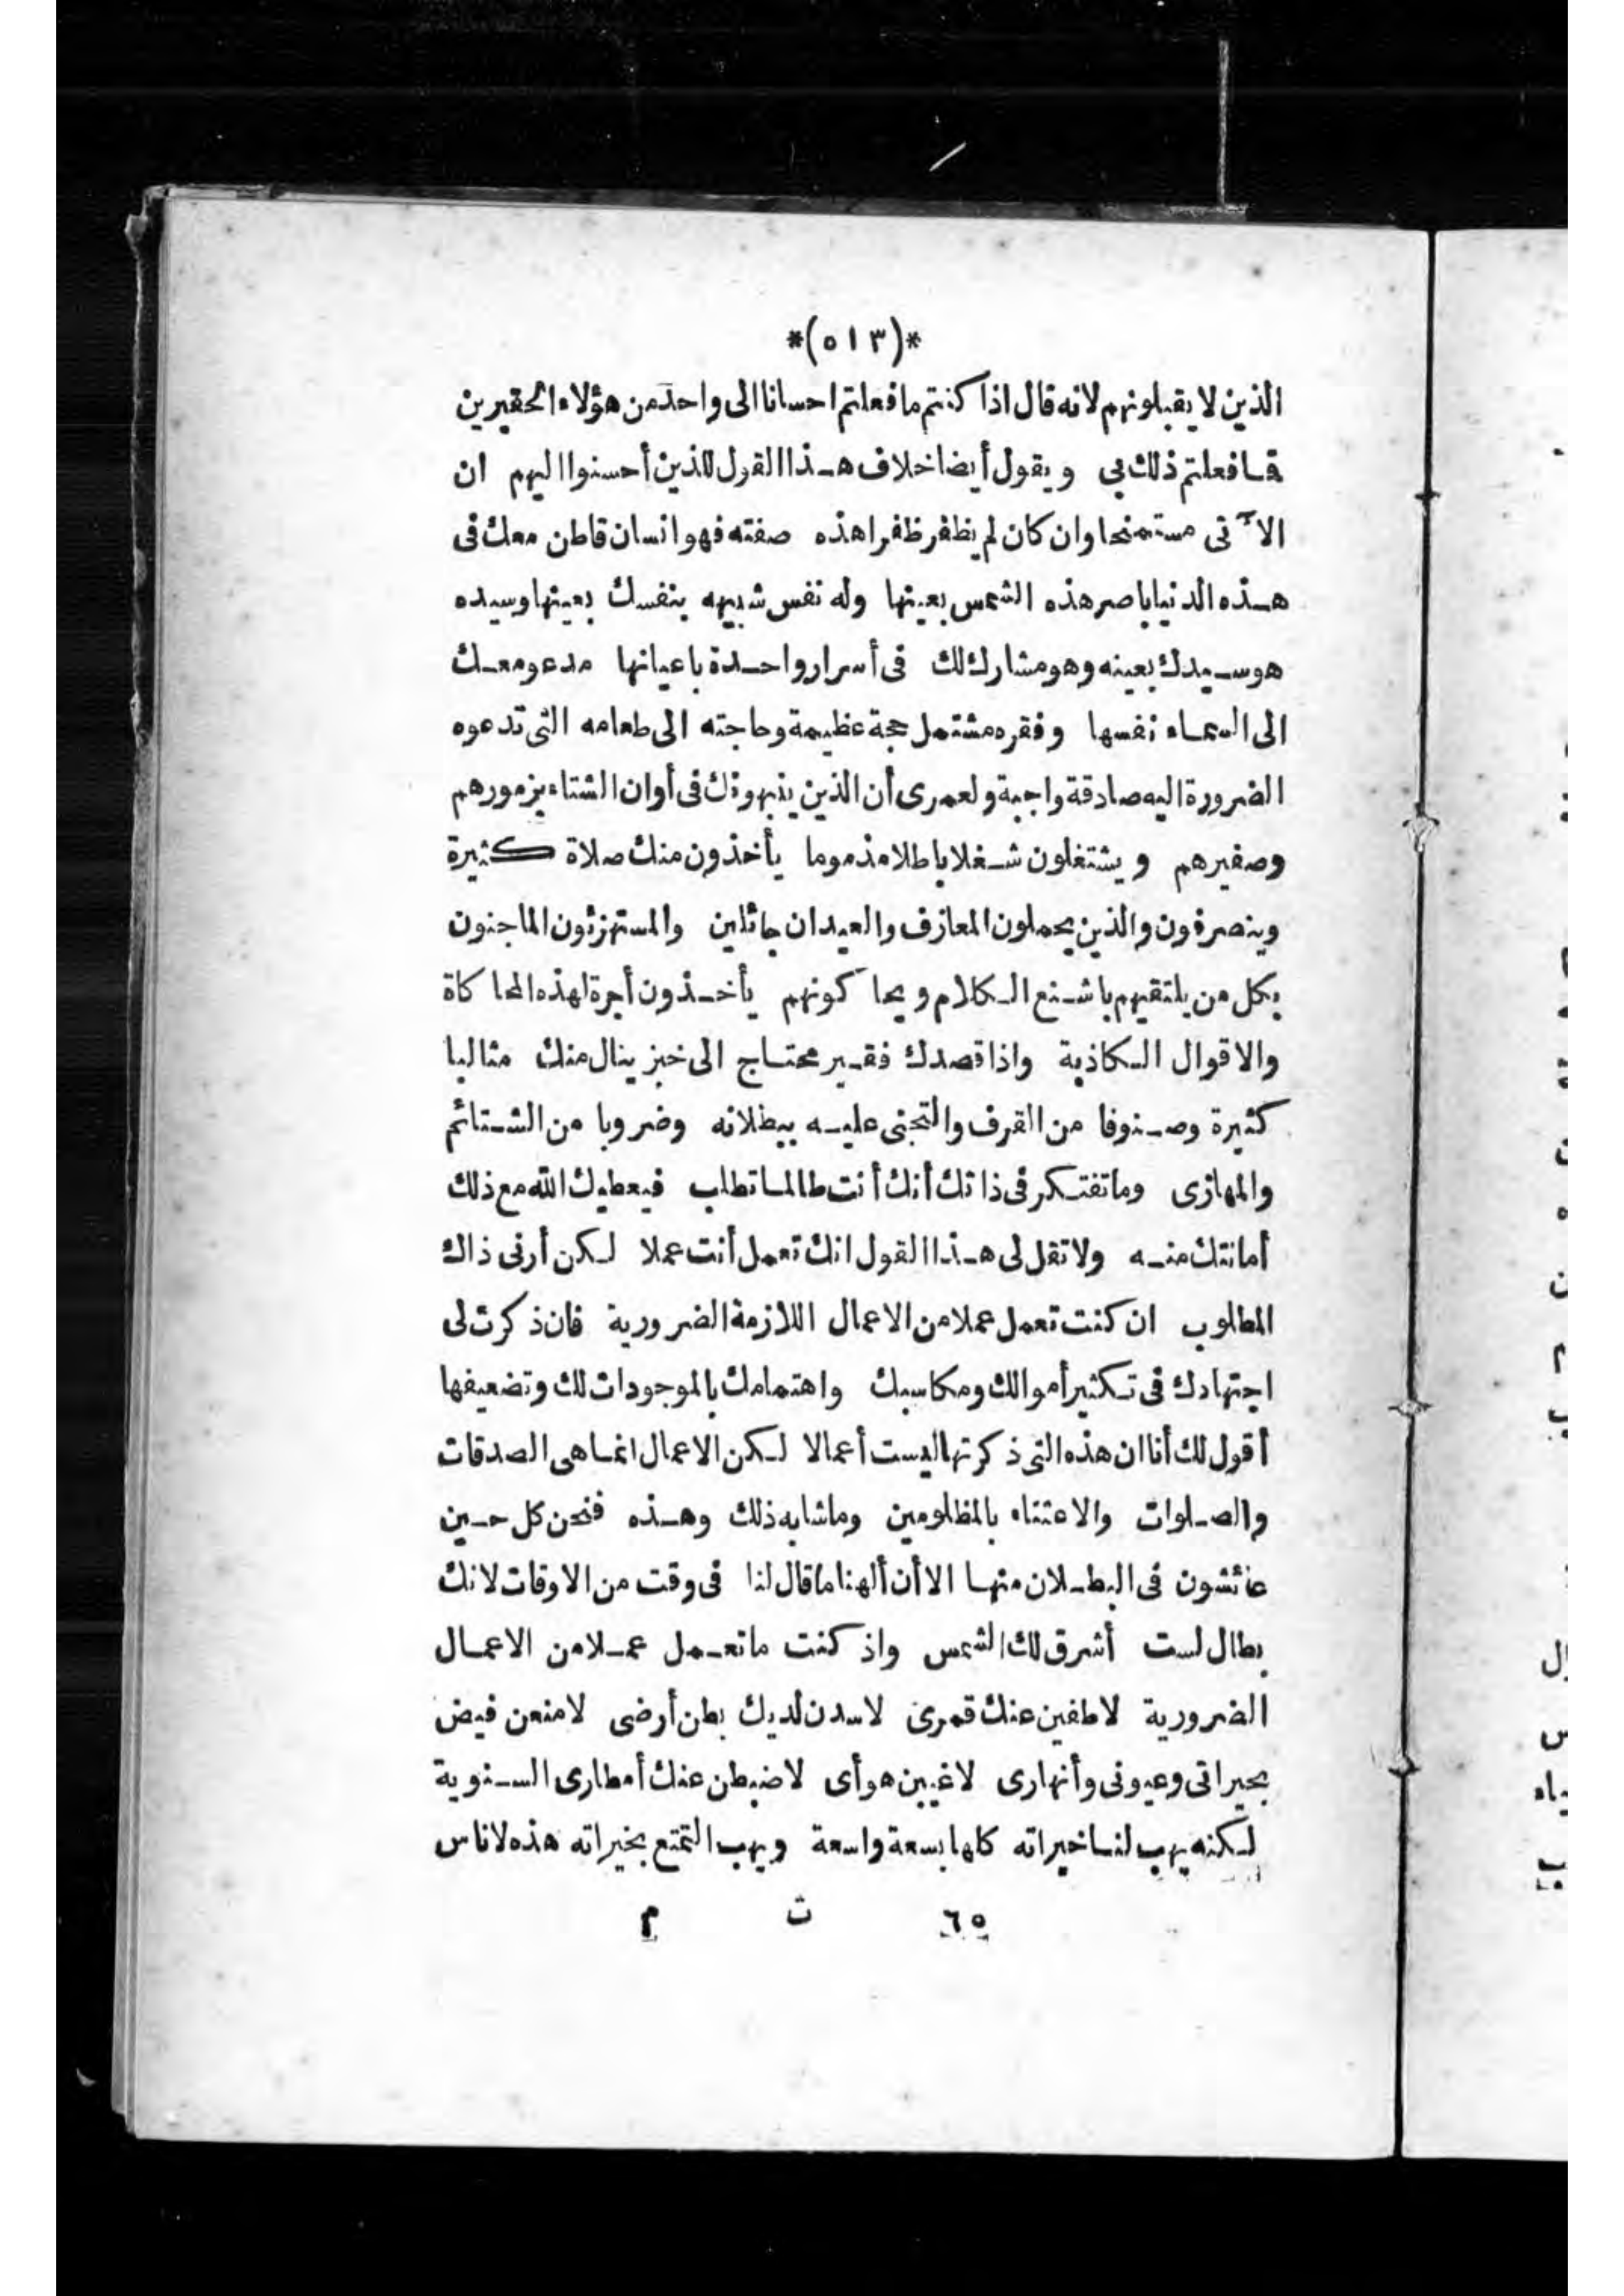 *(٥١٣)*
الذين لا يقبلونهم لانه قال اذا كنتم ما فعلتم احسانا الى واحد من هؤلاء الحقيرين
فما فعلتم ذلك بى ويقول أيضا خلاف هذا القول للذين أحسنوا اليهم ان
الآتى مستمنحا وان كان لم يظفر ظفرا هذه صفته فهو انسان قاطن معك فى
هذه الدنيا باصر هذه الشمس بعينها وله نفس شبيهه بنفسك بعينها وسيده
هو سيدك بعينه وهو مشارك لك فى أسرار واحدة باعيانها مدعو معك
الى السماء نفسها وفقره مشتمل حجة عظيمة وحاجته الى طعامه التى تدعوه
الضرورة اليه صادقة واجبة ولعمرى أن الذين ينبهونك فى أوان الشتاء بزمورهم
وصفيرهم ويشتغلون شغلا باطلا مذموما يأخذون منك صلاة كثيرة
وينصرفون والذين يحملون المعازف والعيدان جائلين والمستهزئون الماجنون
بكل من يلتقيهم باشنع الكلام ويحاكونهم يأخذون أجرة لهذه المحاكاة
والاقوال الكاذبة واذا قصدك فقير محتاج الى خبز ينال منك مثالبا
كثيرة وصنوفا من القرف والتجنى عليه ببطلانه وضروبا من الشتائم
والمهازى وما تفتكر فى ذاتك أنك أنت طالما تطلب فيعطيك الله مع ذلك
أمانتك منه ولا تقل لى هذا القول انك تعمل أنت عملا لكن أرنى ذاك
المطلوب ان كنت تعمل عملا من الاعمال اللازمة الضرورية فان ذكرت لى
اجتهادك فى تكثير أموالك ومكاسبك واهتمامك بالموجودات لك وتضعيفها
أقول لك أنا ان هذه التى ذكرتها ليست أعمالا لكن الاعمال انما هى الصدقات
والصلوات والاعتناء بالمظلومين وما شابه ذلك وهذه فنحن كل حين
عائشون فى البطلان منها الا أن ألهنا ما قال لنا فى وقت من الاوقات لانك
بطال لست أشرق لك الشمس واذ كنت ما تعمل عملا من الاعمال
الضرورية لاطفين عنك قمرى لاسدن لديك بطن أرضى لامنعن فيض
بحيراتى وعيونى وأنهارى لاغيبن هوأى لاضبطن عنك أمطارى السنوية
لكنه يهب لنا خيراته كلها بسعة واسعة ويهب التمتع بخيراته هذه لاناس
٦٥ ت م